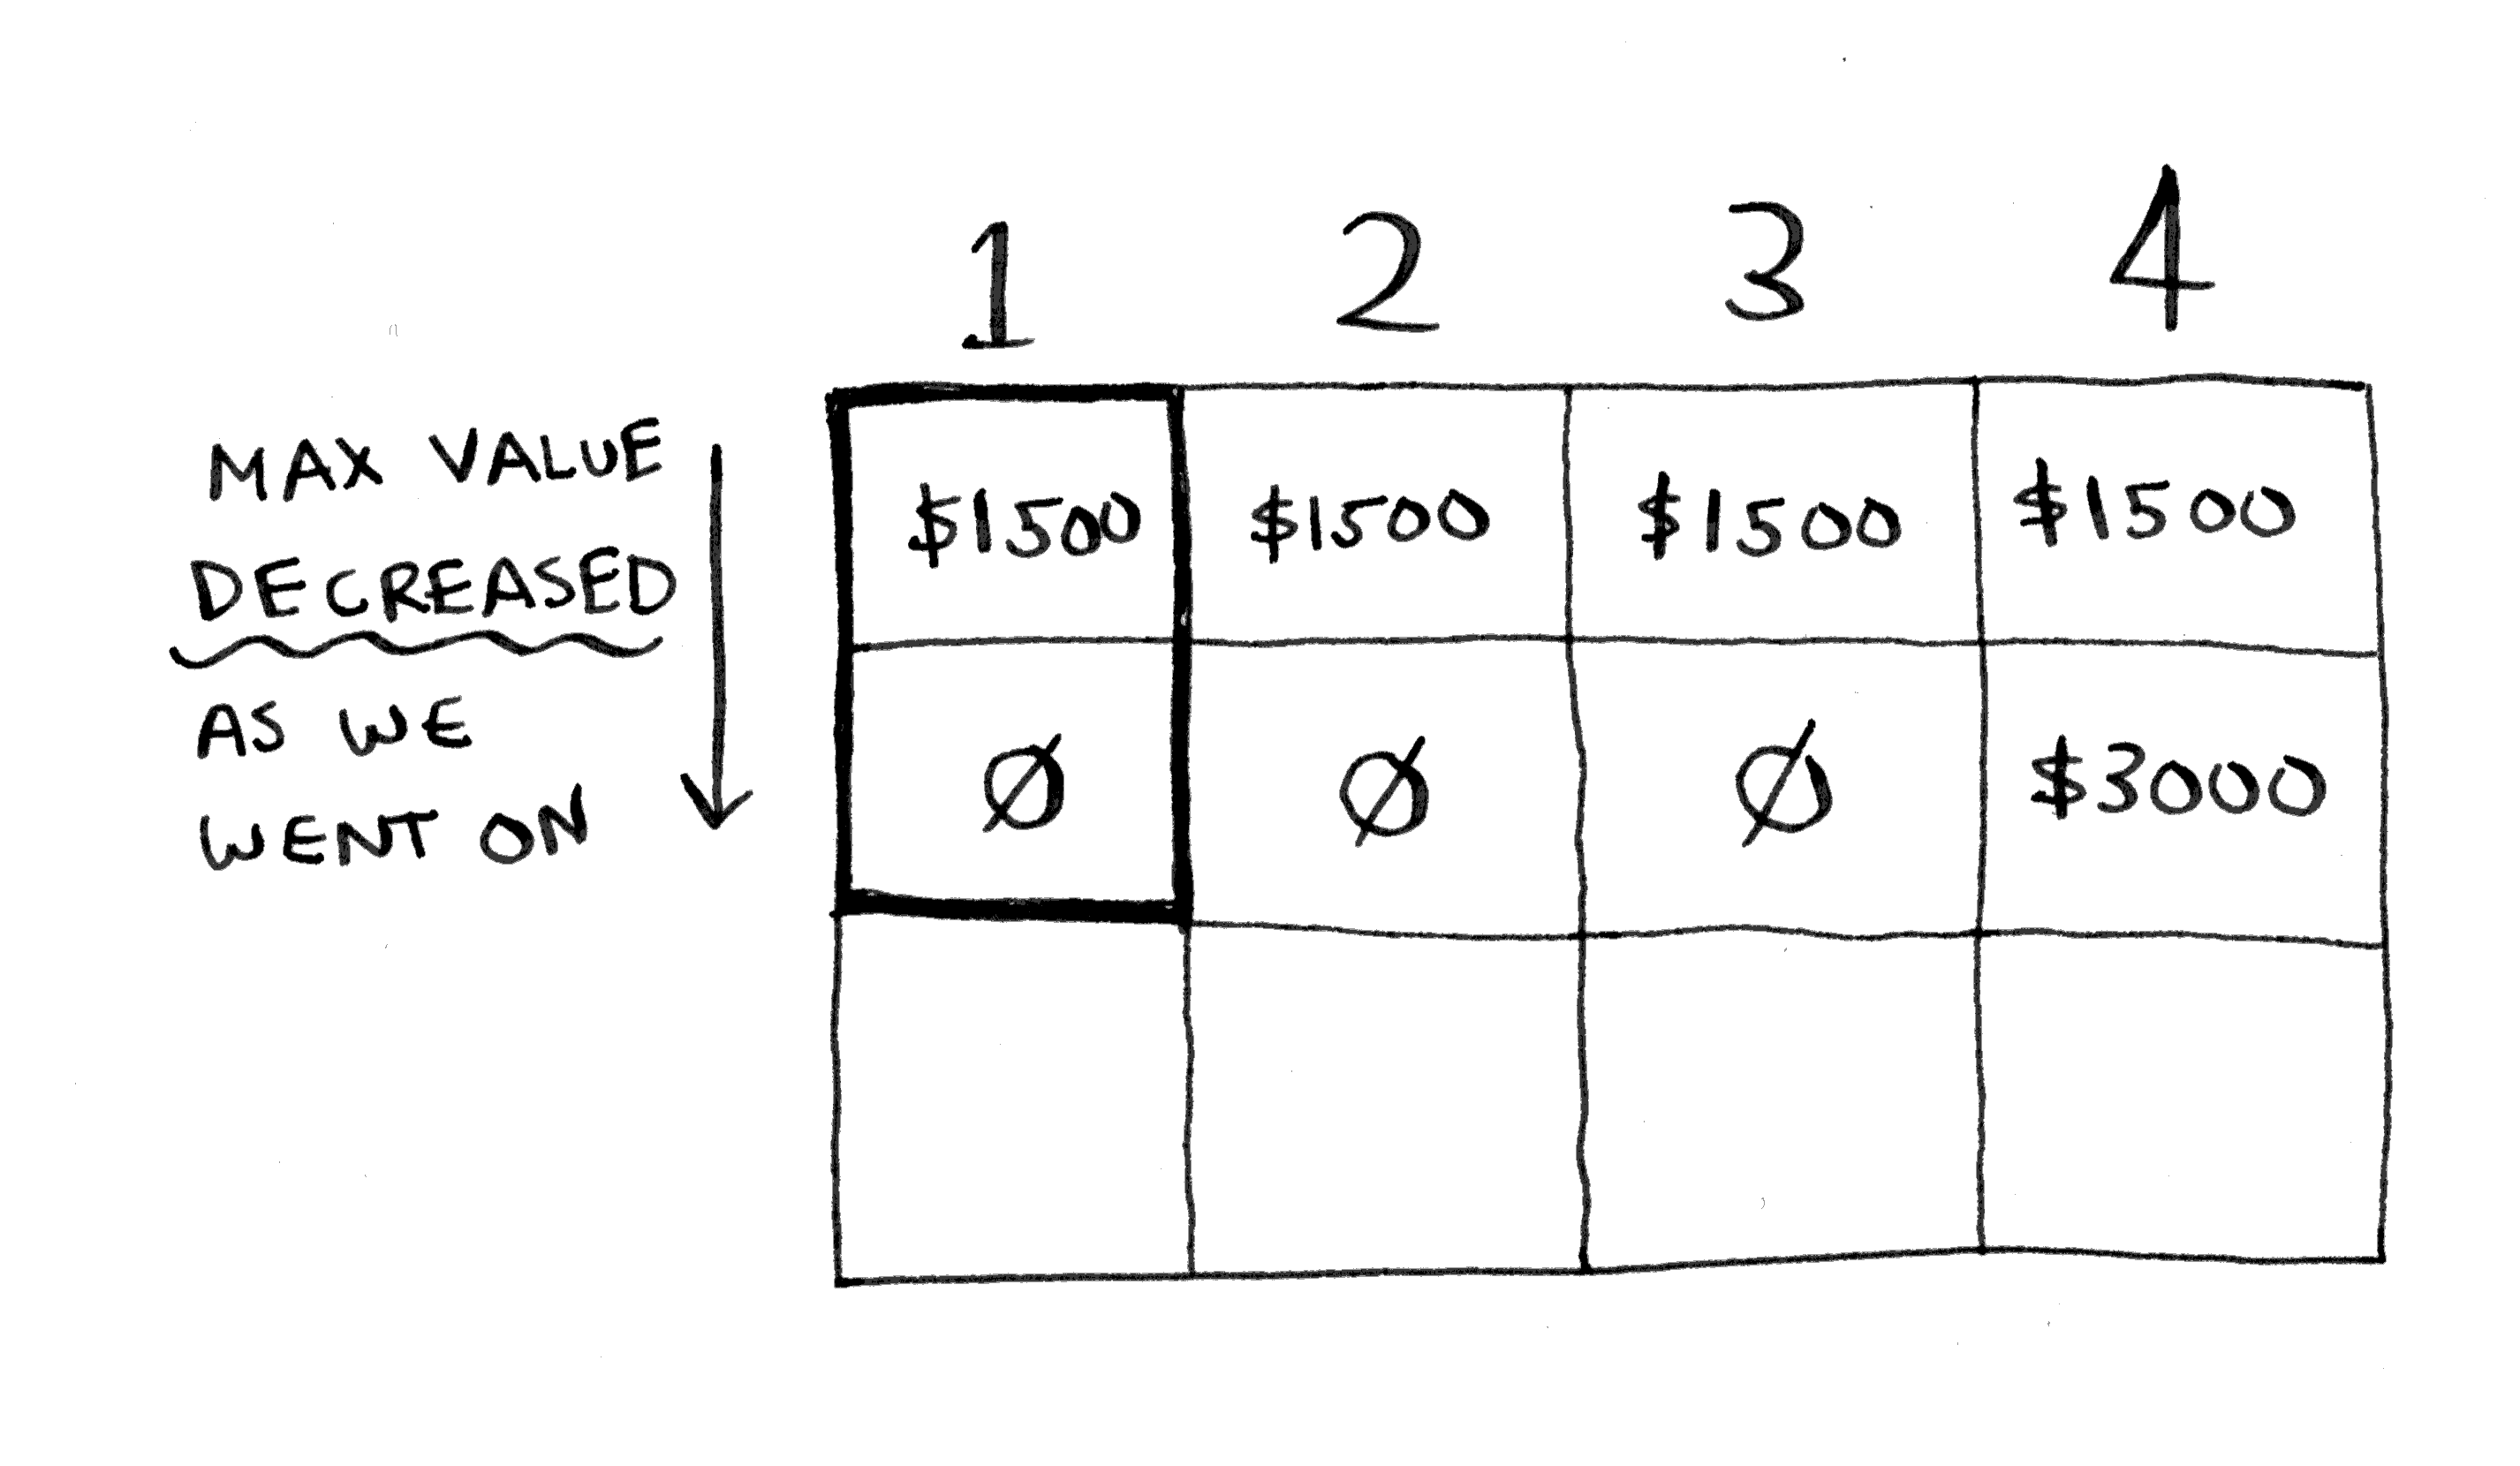 1 2 3 4
MAX VALUE
DECREASED
AS WE
WENT ON
$1500 $1500 $1500 $1500
Ø Ø Ø $3000